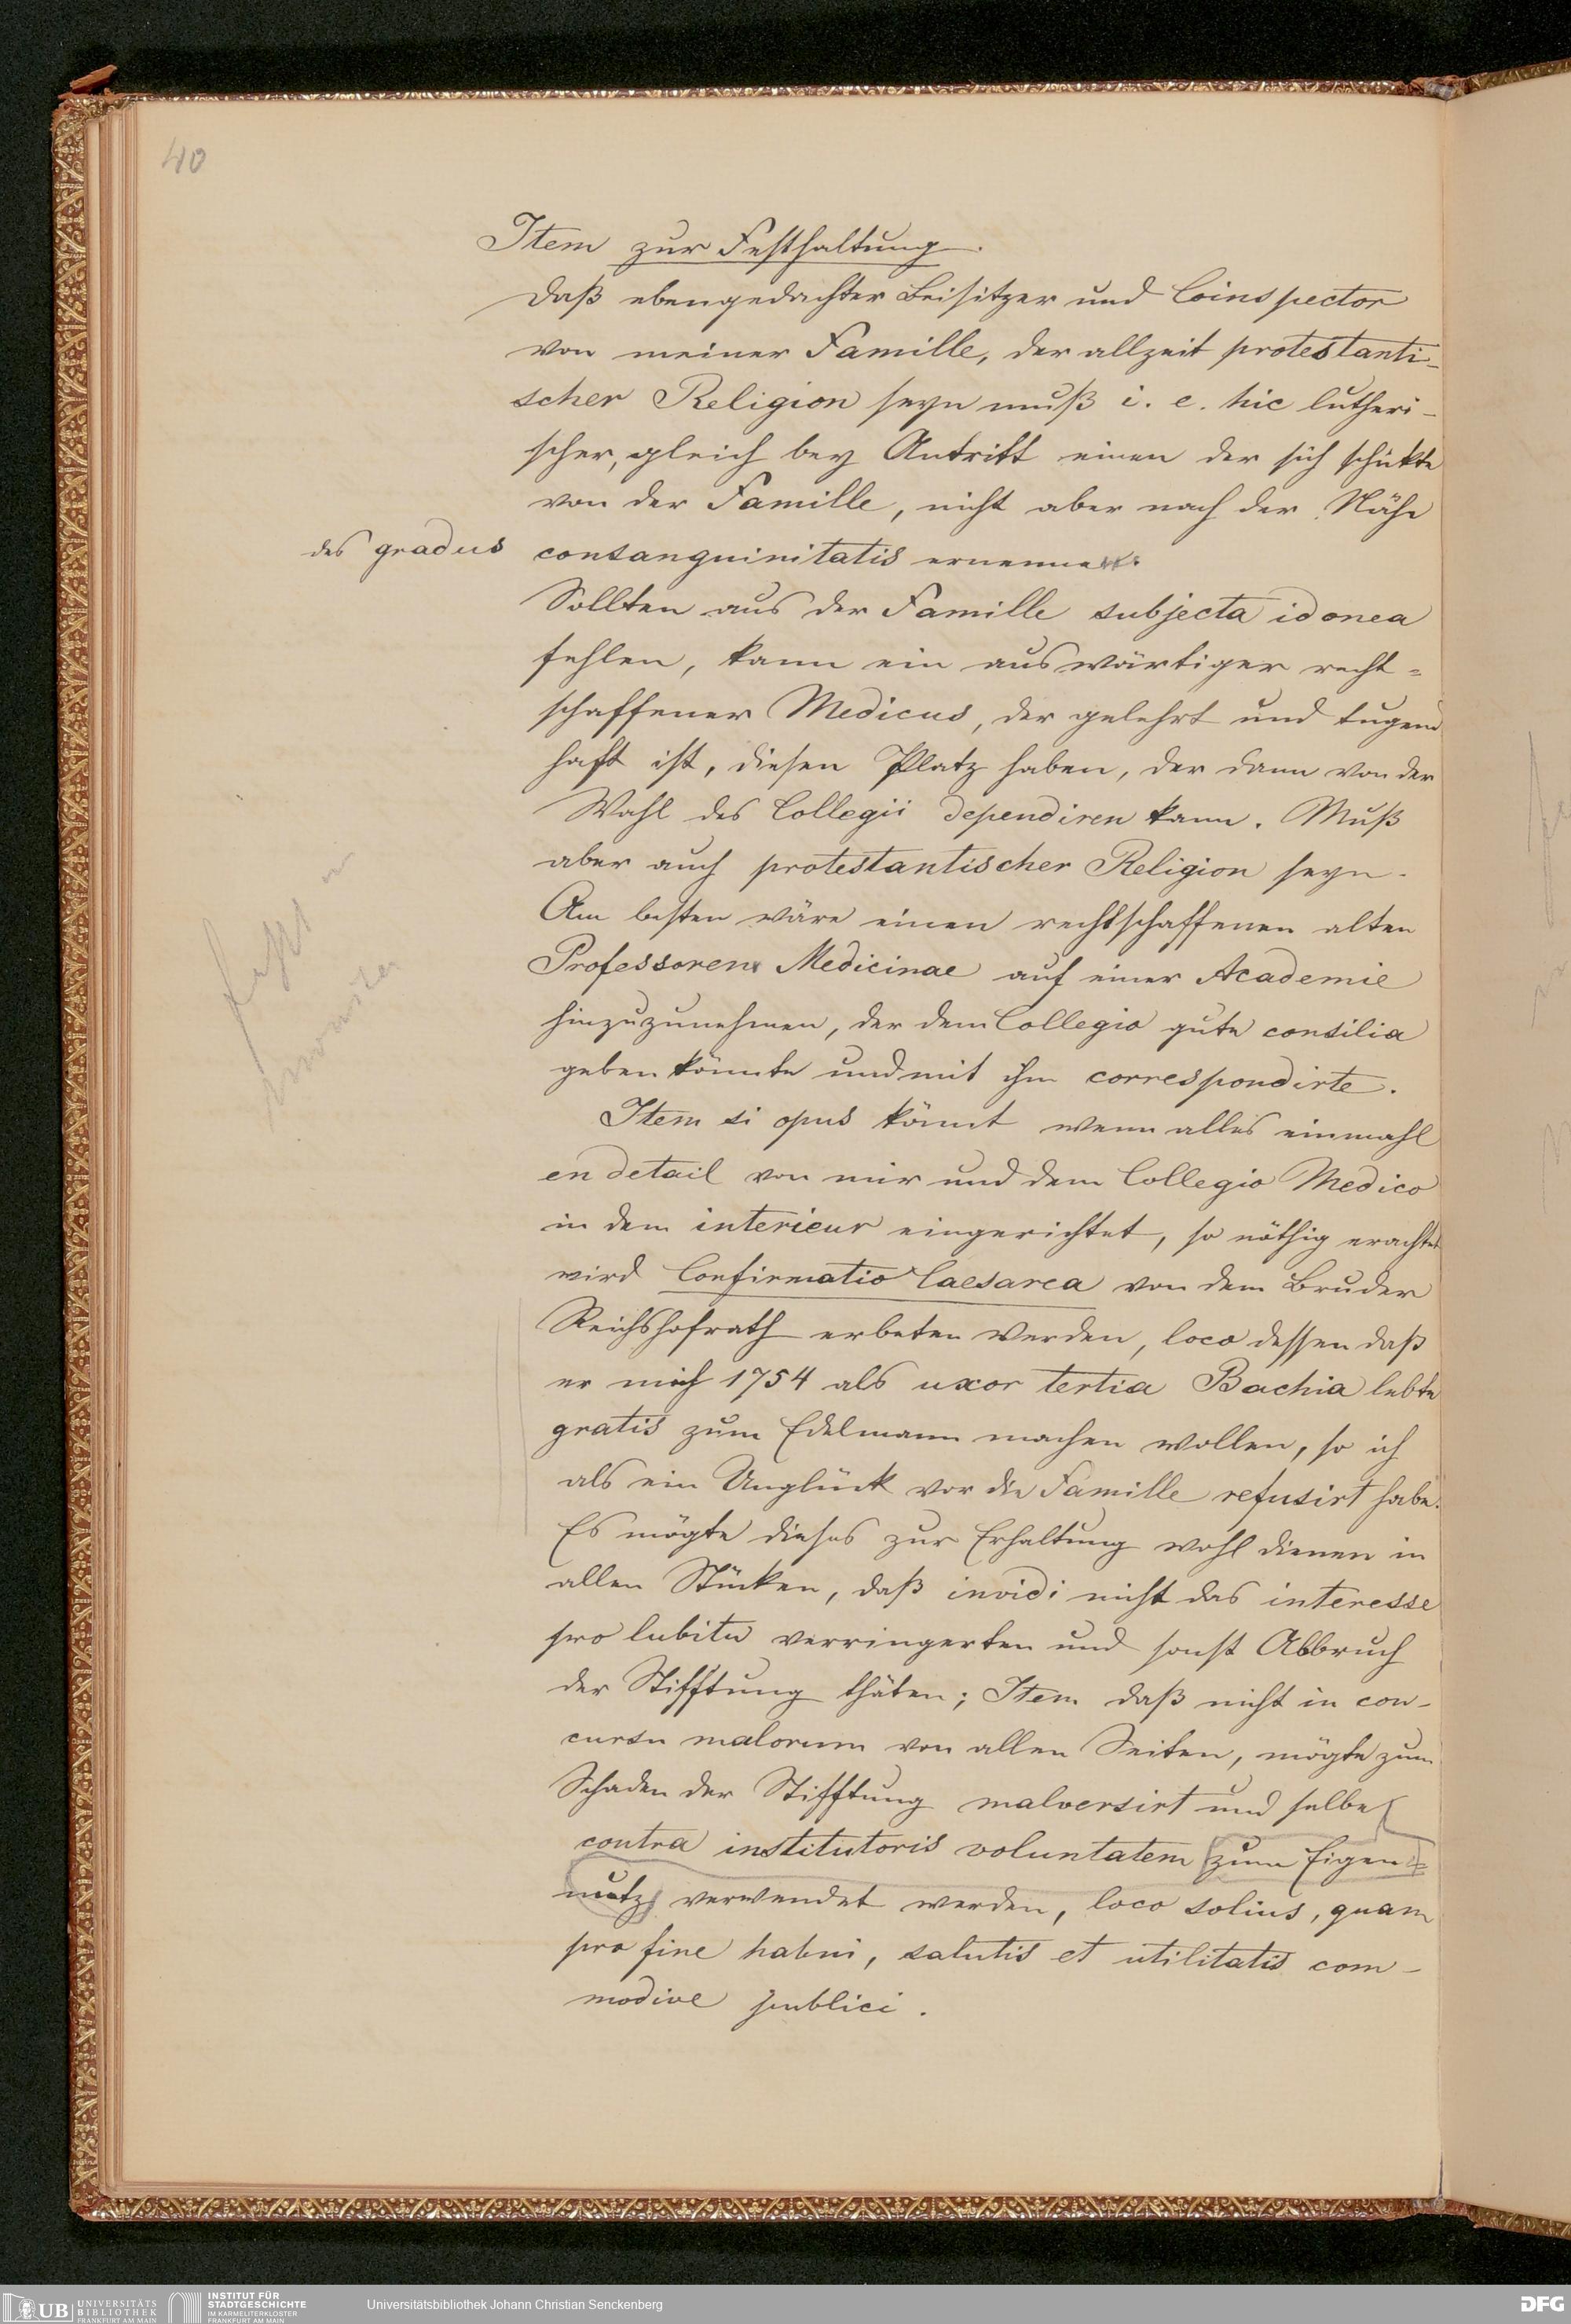 40
Item zur Festhaltung.
Daß ebengedachter Beisitzer und Coinspector
von meiner Famille, der allzeit protestanti-
scher Religion seyn muß i. e. hic lutheri-
scher, gleich bey Antritt einen der sich schickte
von der Famille, nicht aber nach der Nähe
des gradus consanguinitatis ernenne.
Sollten aus der Famille subjecta idonea
fehlen, kann ein auswärtiger recht=
schaffener Medicus, der gelehrt und tugend
haft ist, diesen Platz haben, der dann von der
Wahl des Collegii dependiren kann. Muß
aber auch protestantischer Religion seyn.
Am besten wäre einen rechtschaffenen alten
Professorem Medicinae auf einer Academie
hinzuzunehmen, der dem Collegio gute consilia
geben könnte und mit ihm correspondirte.
Item si opus könnt wenn alles einmahl
en detail von mir und dem Collegio Medico
in dem interieur eingerichtet, so nöthig erachtet
wird Confirmatio Caesarea von dem Bruder
Reichshofrath erbeten werden, loco dessen daß
er mich 1754 als uxor tertia Bachia lebte
gratis zum Edelmann machen wollen, so ich
als ein Unglück vor die Famille refusirt habe.
Es mögte dieses zur Erhaltung wohl dienen in
allen Stücken, daß invidi nicht das interesse
pro lubitu verringerten und sonst Abbruch
der Stifftung thäten; Item daß nicht in con-
cursu malorum von allen Seiten, mögte zum
Schaden der Stifftung malversirt und selbe
contra institutoris voluntatem zum Eigen=
nutz verwendet werden, loco solius, quam
pro fine habui, salutis et utilitatis com-
modive publici.
UB UNIVERSITÄTS
BIBLIOTHEK
FRANKFURT AM MAIN
INSTITUT FÜR
STADTGESCHICHTE
IM KARMELITERKLOSTER
FRANKFURT AM MAIN
Universitätsbibliothek Johann Christian Senckenberg
DFG